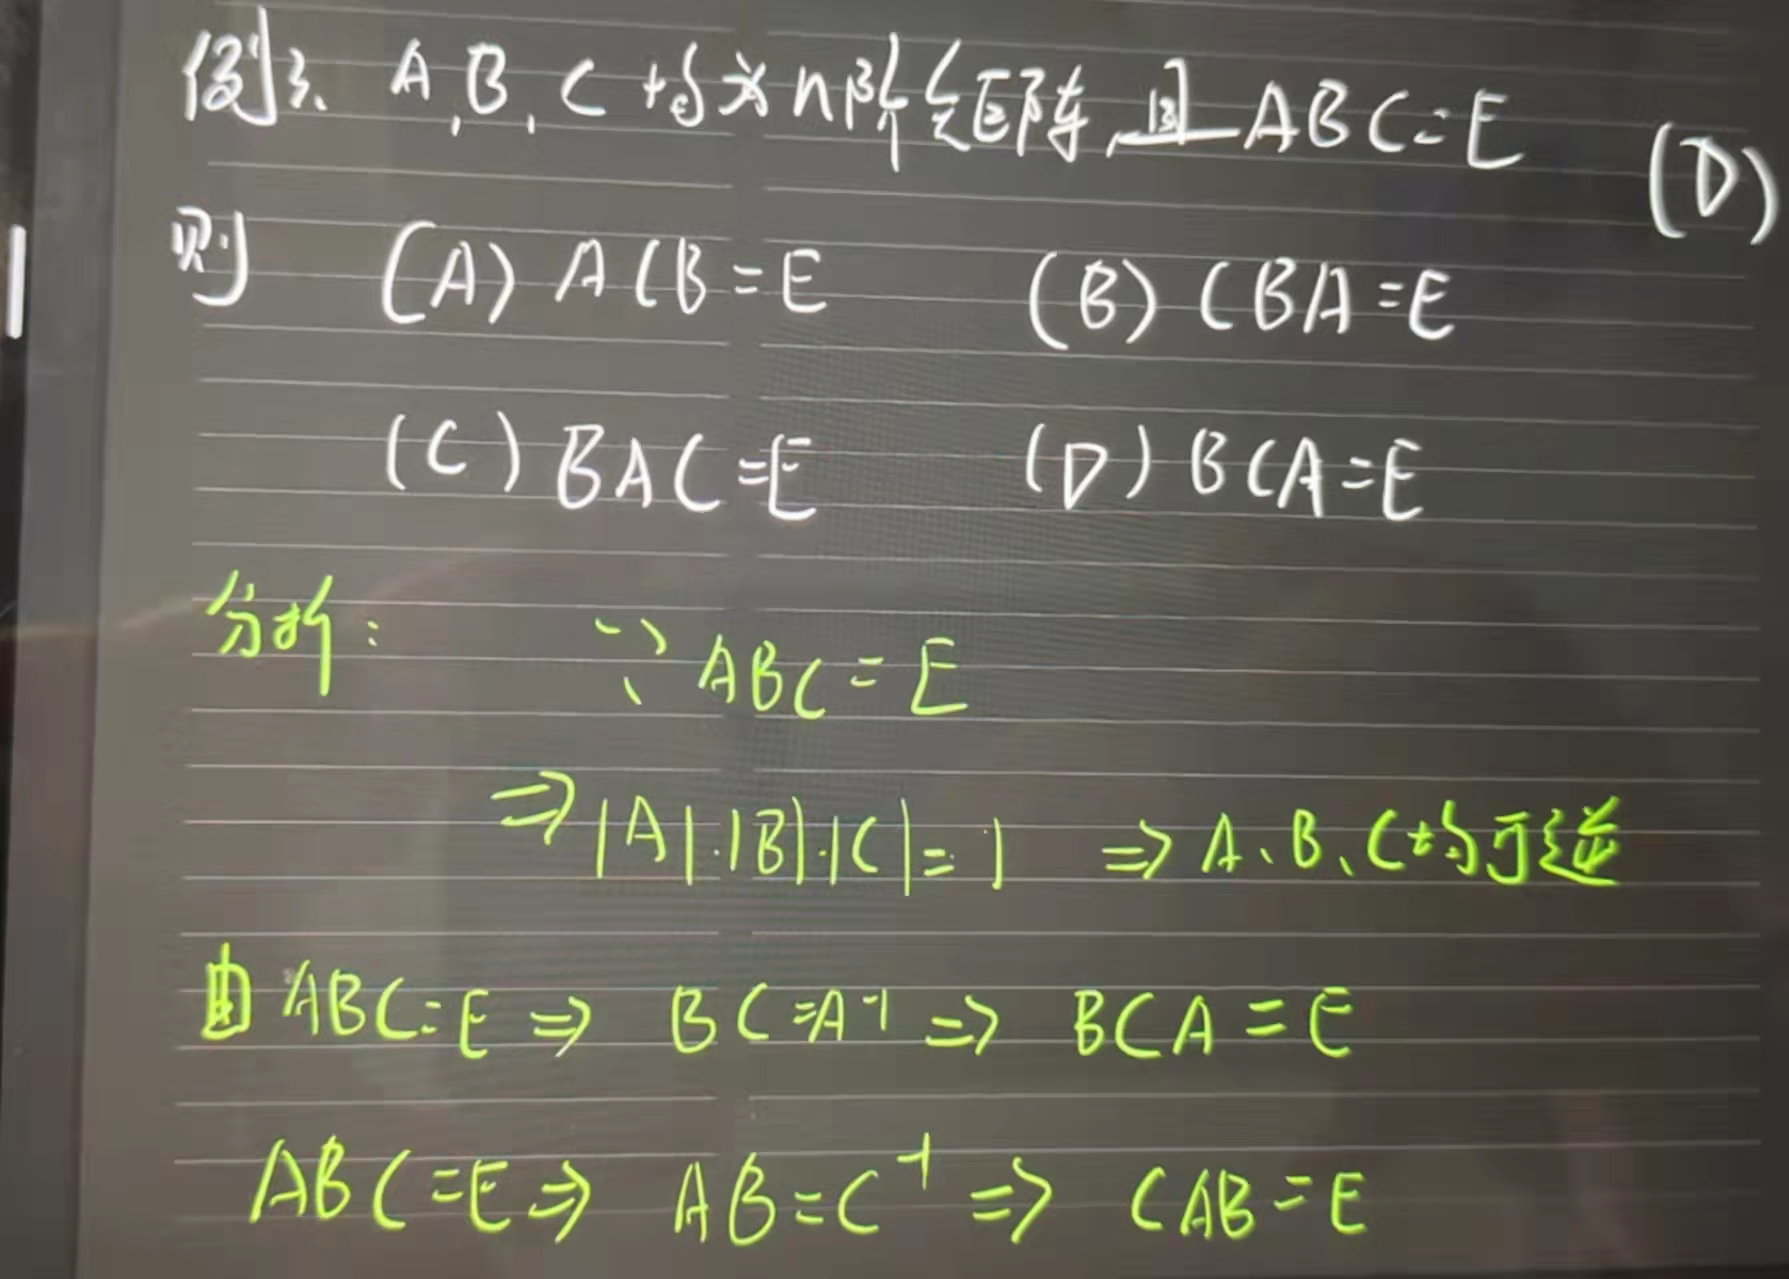 例3、A,B,C均为n阶矩阵,且ABC=E (D)
则 (A) ACB=E (B) CBA=E
(C) BAC=E (D) BCA=E
分析: ∵ABC=E
⇒|A|·|B|·|C|=1 ⇒A、B、C均可逆
由ABC=E ⇒ BC=A⁻¹ ⇒ BCA=E
ABC=E ⇒ AB=C⁻¹ ⇒ CAB=E